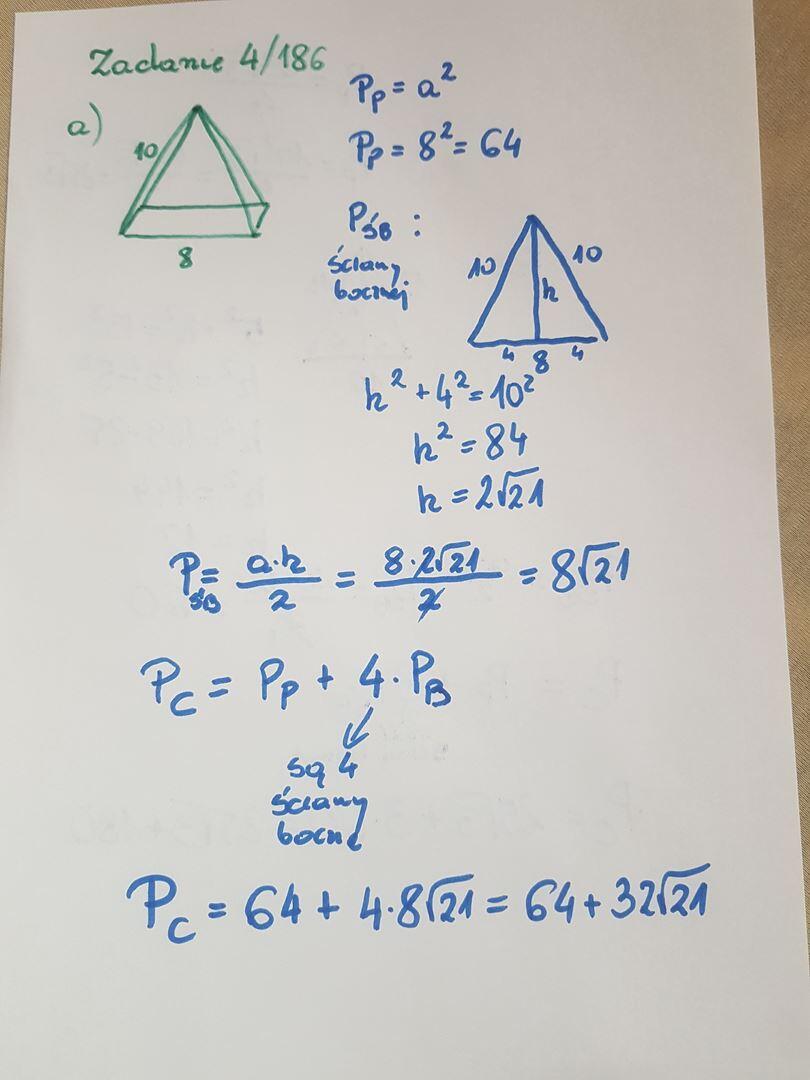 Zadanie 4/186
a)
10
8
Pp = a²
Pp = 8² = 64
PŚB :
ściany
bocznej
10
10
h
4 8 4
h² + 4² = 10²
h² = 84
h = 2√21
PŚB = a·h/2 = 8·2√21/2 = 8√21
Pc = Pp + 4·PB
są 4
ściany
boczne
Pc = 64 + 4·8√21 = 64 + 32√21